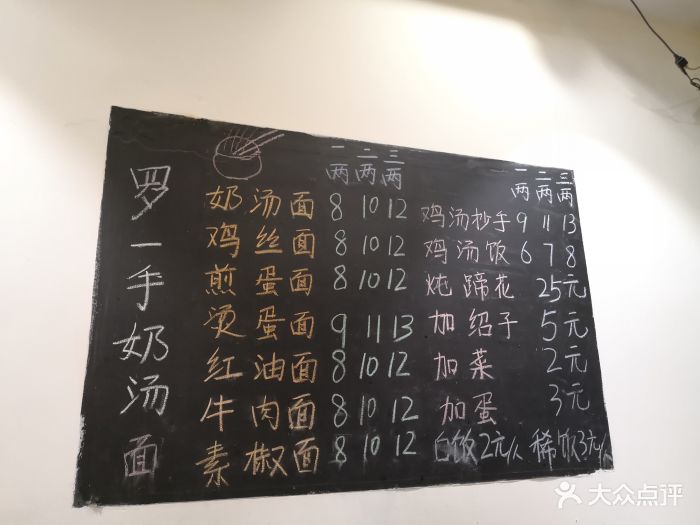 罗一手奶汤面
一两 二两 三两
奶汤面 8 10 12
鸡丝面 8 10 12
煎蛋面 8 10 12
烫蛋面 9 11 13
红油面 8 10 12
牛肉面 8 10 12
素椒面 8 10 12
一两 二两 三两
鸡汤抄手 9 11 13
鸡汤饭 6 7 8
炖蹄花 25元
加绍子 5元
加菜 2元
加蛋 3元
白饭2元/人 稀饭3元/人
大众点评